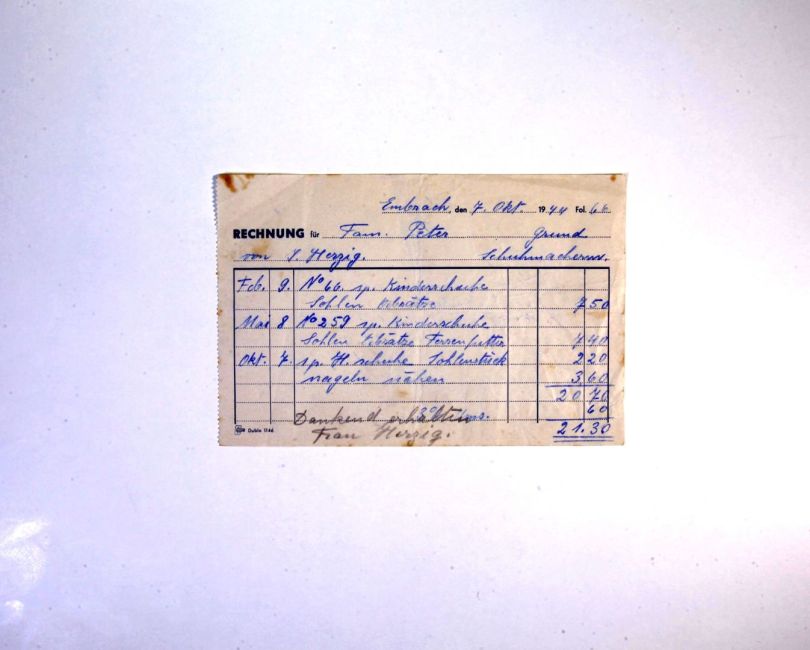 Embrach, den 7. Okt. 1944 Fol. 68
RECHNUNG für Fam. Peter Grund
von S. Herzig. Schuhmacherm.
Feb. 9. No 66. sp. Kinderschuhe
Sohlen Absätze 7 50
Mai 8 No 259 sp. Kinderschuhe
Sohlen Absätze Fersenfutter 7 40
Okt. 7. sp. H. schuhe Sohlenstück 2 20
nageln nähen 3 60
20 70
3% 60
Dankend erhalten
Frau Herzig. 21.30
Dublo 1144